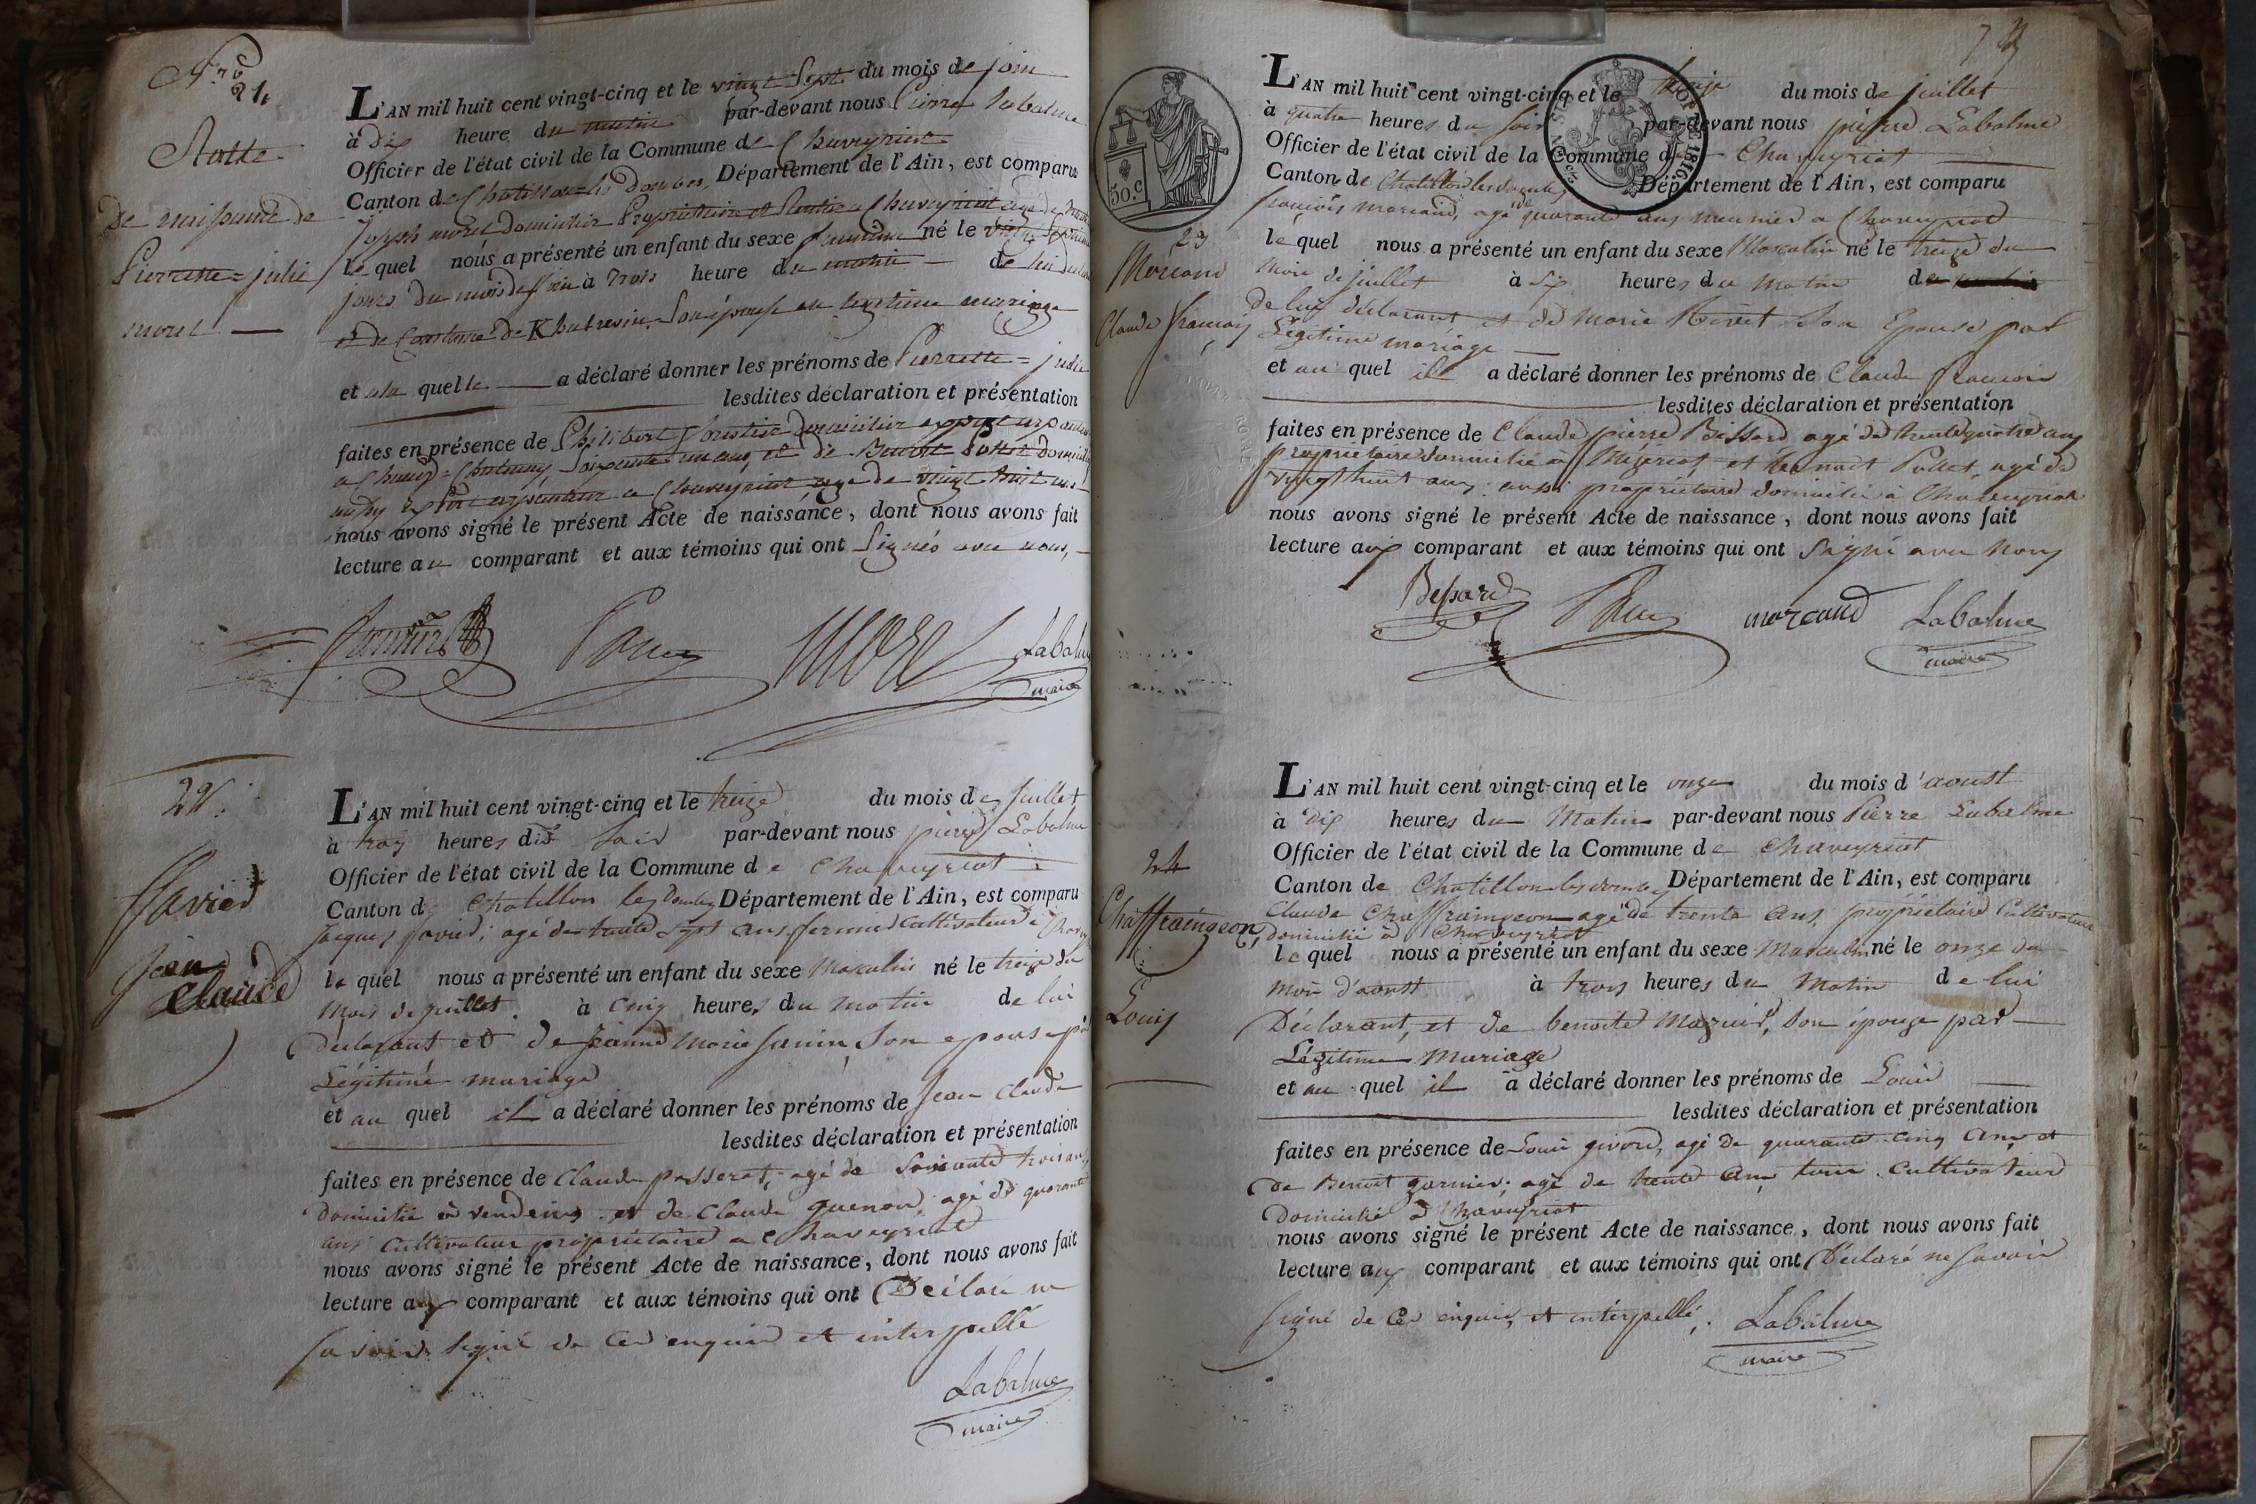 N.ro 21.
Acte
de naissance de
Pierrette = julie
morel
L'AN mil huit cent vingt-cinq et le vingt Sept du mois de join
à dix heure du matin par-devant nous Pierre Labalme
Officier de l'état civil de la Commune de Chaveyriat
Canton de Chatillon les dombes, Département de l'Ain, est comparu
Joseph morel domicilié Propriétaire et Rentier a Chaveyriat agé de
le quel nous a présenté un enfant du sexe féminin né le vingt Septième
jours du mois de join à trois heure du matin de lui declarant
et de Son épouse en legitime mariage
et a la quelle a déclaré donner les prénoms de Pierrette = julie
lesdites déclaration et présentation
faites en présence de Philibert domicilié expert arpenteur
a Soixante un ans, et de Benoit Pollet domicilié
expert arpenteur a Chaveyriat age de vingt huit ans
nous avons signé le présent Acte de naissance, dont nous avons fait
lecture au comparant et aux témoins qui ont Signés avec nous,
Morel
Labalme
maire
22.
favier
Jean
Claude
L'AN mil huit cent vingt-cinq et le treize du mois de Juillet
à troy heures du Soir par-devant nous pierre Labalme
Officier de l'état civil de la Commune de chaveyriat
Canton de Chatillon les Dombes Département de l'Ain, est comparu
Jacques favier; agé de trente Sept ans fermier Cultivateur à
le quel nous a présenté un enfant du sexe Masculin né le treize du
Mois de juillet. à cinq heures du matin de lui
declarant et de Jeanne Marie Janin, Son epouse par
Légitime mariage
et au quel il a déclaré donner les prénoms de Jean Claude
lesdites déclaration et présentation
faites en présence de Claude passerat; agé de Soixante trois ans,
domicilié à vendeins et de Claude guenon, agé de quarante
ans Cultivateur propriétaire a chaveyriat
nous avons signé le présent Acte de naissance, dont nous avons fait
lecture aux comparant et aux témoins qui ont Déclaré ne
Savoir signé de Ce enquis et interpellé
Labalme
maire
73
50.c
1816
23
Morcand
Claude françois
L'AN mil huit cent vingt-cinq et le treize du mois de juillet
à quatre heures du Soir par-devant nous pierre Labalme
Officier de l'état civil de la Commune de Chaveyriat
Canton de Chatillon les dombes Département de l'Ain, est comparu
françois morcand, agé de quarante ans meunier a Chaveyriat
le quel nous a présenté un enfant du sexe Masculin né le treize du
mois de juillet à six heures du Matin
de lui déclarant et de Marie Rivet Son Epouse par
Légitime mariage
et au quel il a déclaré donner les prénoms de Claude françois
lesdites déclaration et présentation
faites en présence de Claude pierre Bessard agé de trente quatre ans
propriétaire domicilié à Mézeriat et benoit Pollet, agé de
vingt huit ans aussi propriétaire domicilié à Chaveyriat
nous avons signé le présent Acte de naissance, dont nous avons fait
lecture aux comparant et aux témoins qui ont Signé avec Nous
Bessard morcand Labalme
maire
24
Chaffraingeon,
Louis
L'AN mil huit cent vingt-cinq et le onze du mois d'aoust
à dix heures du Matin par-devant nous Pierre Labalme
Officier de l'état civil de la Commune de Chaveyriat
Canton de Chatillon les dombes Département de l'Ain, est comparu
Claude Chaffraingeon agé de trente ans, propriétaire Cultivateur
domicilié à Chaveyriat
le quel nous a présenté un enfant du sexe Masculin né le onze du
mois d'aoust à trois heures du Matin de lui
Déclarant, et de benoite Mazuir, Son épouze par
Légitime Mariage
et au quel il a déclaré donner les prénoms de Louis
lesdites déclaration et présentation
faites en présence de Louis givord, agé de quarante cinq ans et
de Benoit garnier; agé de trente ans tous Cultivateur
domicilié à Chaveyriat
nous avons signé le présent Acte de naissance, dont nous avons fait
lecture aux comparant et aux témoins qui ont Déclaré ne Savoir
Signé de Ce enquis, et interpellé,. Labalme
maire